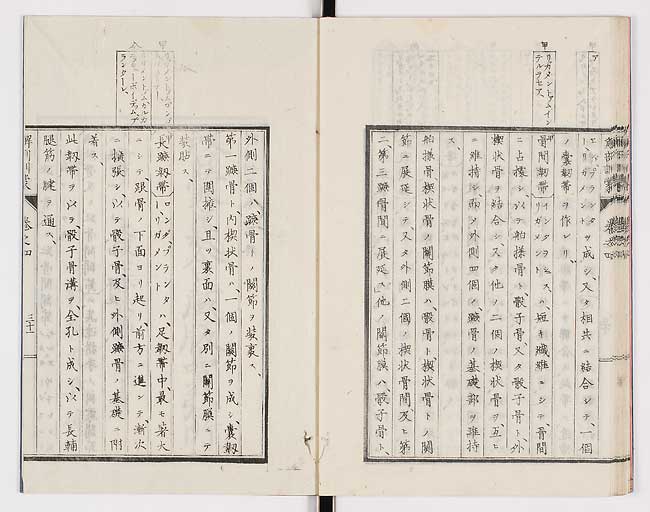 甲
リガメント、アム、イン
テルラセア、
リガメント」ヲ成シ、又タ相共ニ結合シテ、一個
ノ嚢韌帯ヲ作レリ、
骨間韌帯「インタラセヒス
リガメント」ハ、短キ纎維ニシテ、骨間
ニ占據シ、以テ舶様骨ト骰子骨又タ骰子骨ト、外
楔状骨ヲ結合シ、又タ他ノ二個ノ楔状骨ヲ互ヒ
ニ維持シ、而メ外側四個ノ蹠骨ノ基礎部ヲ維持
ス、
舶様骨楔状骨ノ關節膜ハ、骰骨ト、楔状骨トノ關
節ニ展延シテ、又タ外側二個ノ楔状骨間及ヒ第
二、第三蹠骨間ニ展延ス、他ノ關節膜ハ、骰子骨ト、
外側二個ハ、蹠骨トノ關節ヲ装裏ス、
第一蹠骨ト内楔状骨ハ、一個ノ關節ヲ成シ、嚢韌
帯ニテ圍擁シ、且ツ裏面ハ、又タ別ニ關節膜ニテ
装貼ス、
長蹠韌帯「ロング、プランタ
ル、リガメント」ハ、足韌帯中、最モ著大
ニシテ、跟骨ノ下面ヨリ起リ、前方ニ進シテ漸次
ニ擴張シ、以テ骰子骨、及ヒ外側蹠骨ノ基礎ニ附
著ス、
此韌帯ヲ以テ骰子骨溝ヲ全孔ト成シ、以テ長輔
腿筋ノ腱ヲ通ス、
巻之四
三十一